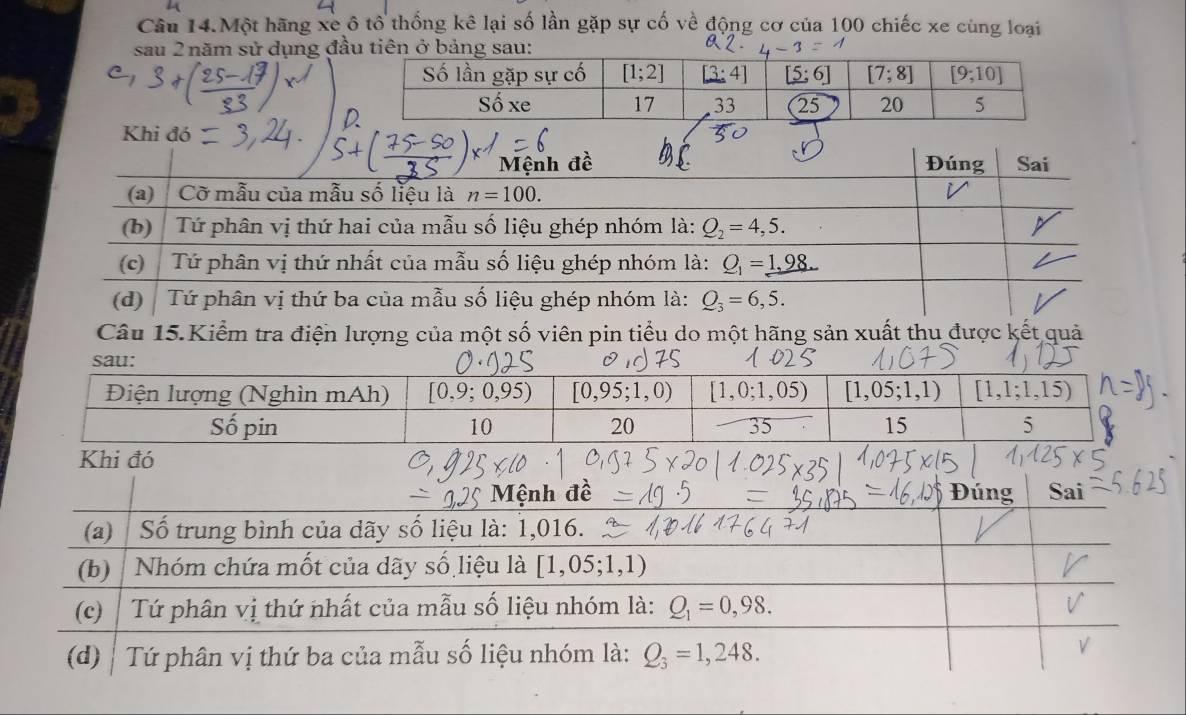 Câu 14. Một hãng xe ô tô thống kê lại số lần gặp sự cố về động cơ của 100 chiếc xe cùng loại
sau 2 năm sử dụng đầu tiên ở bảng sau:
Q2. 4-3=1
c, 3+(25-17/33)×1
= 3,24.
Số lần gặp sự cố [1;2] [3;4] [5;6] [7;8] [9;10]
Số xe 17 33 25 20 5
50
Khi đó
D. 5+(75-50/25)×1=6
Mệnh đề Đúng Sai
(a) Cỡ mẫu của mẫu số liệu là n=100. V
(b) Tứ phân vị thứ hai của mẫu số liệu ghép nhóm là: Q₂=4,5. V
(c) Tứ phân vị thứ nhất của mẫu số liệu ghép nhóm là: Q₁=1,98. V
(d) Tứ phân vị thứ ba của mẫu số liệu ghép nhóm là: Q₃=6,5. V
Câu 15. Kiểm tra điện lượng của một số viên pin tiểu do một hãng sản xuất thu được kết quả
sau:
0.925 0,975 1025 1,075 1,125
Điện lượng (Nghìn mAh) [0,9; 0,95) [0,95;1,0) [1,0;1,05) [1,05;1,1) [1,1;1,15) n=85.
Số pin 10 20 35 15 5
Khi đó
0,925×10 | 0,975×20 | 1.025×35 | 1,075×15 | 1,125×5
= 9,25 = 19.5 = 35,875 = 16,125 = 5.625
Mệnh đề Đúng Sai
(a) Số trung bình của dãy số liệu là: 1,016. ≈ 1,016176471 V
(b) Nhóm chứa mốt của dãy số liệu là [1,05;1,1) V
(c) Tứ phân vị thứ nhất của mẫu số liệu nhóm là: Q₁=0,98. V
(d) Tứ phân vị thứ ba của mẫu số liệu nhóm là: Q₃=1,248. V